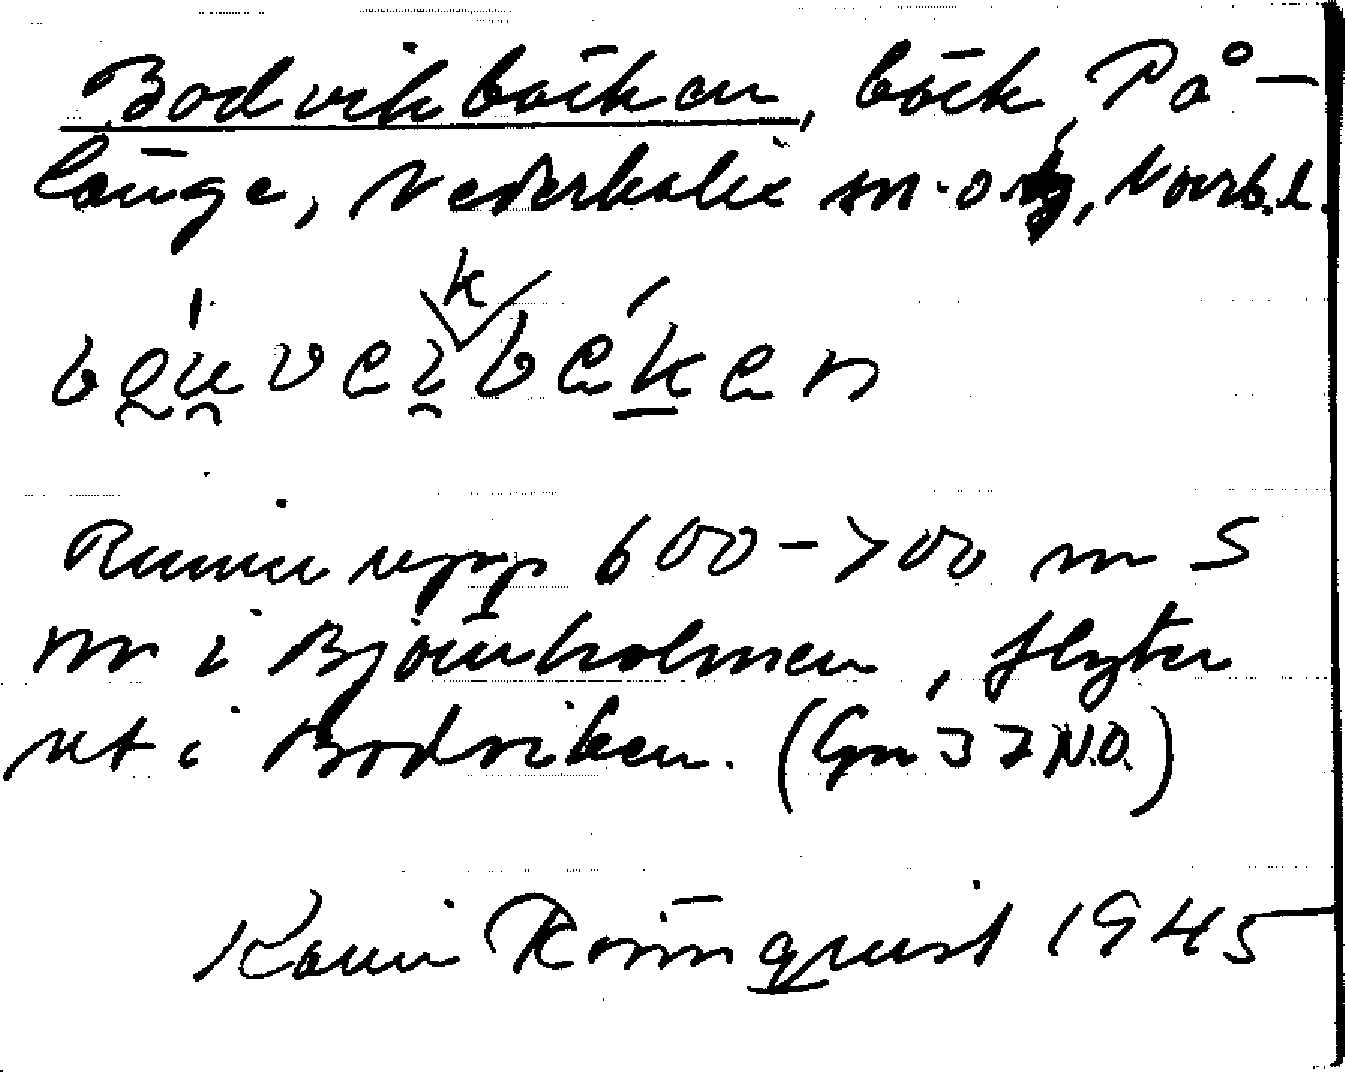 Bodvikbäcken, bäck, På-
länge, Nederkalix sn o. , Norrb. l.
k
Rinner upp 600-700 m S
om i Björnholmen, flyter
ut i Bodviken. (Gn 37 N.O.)
Karin Rönnqvist 1945